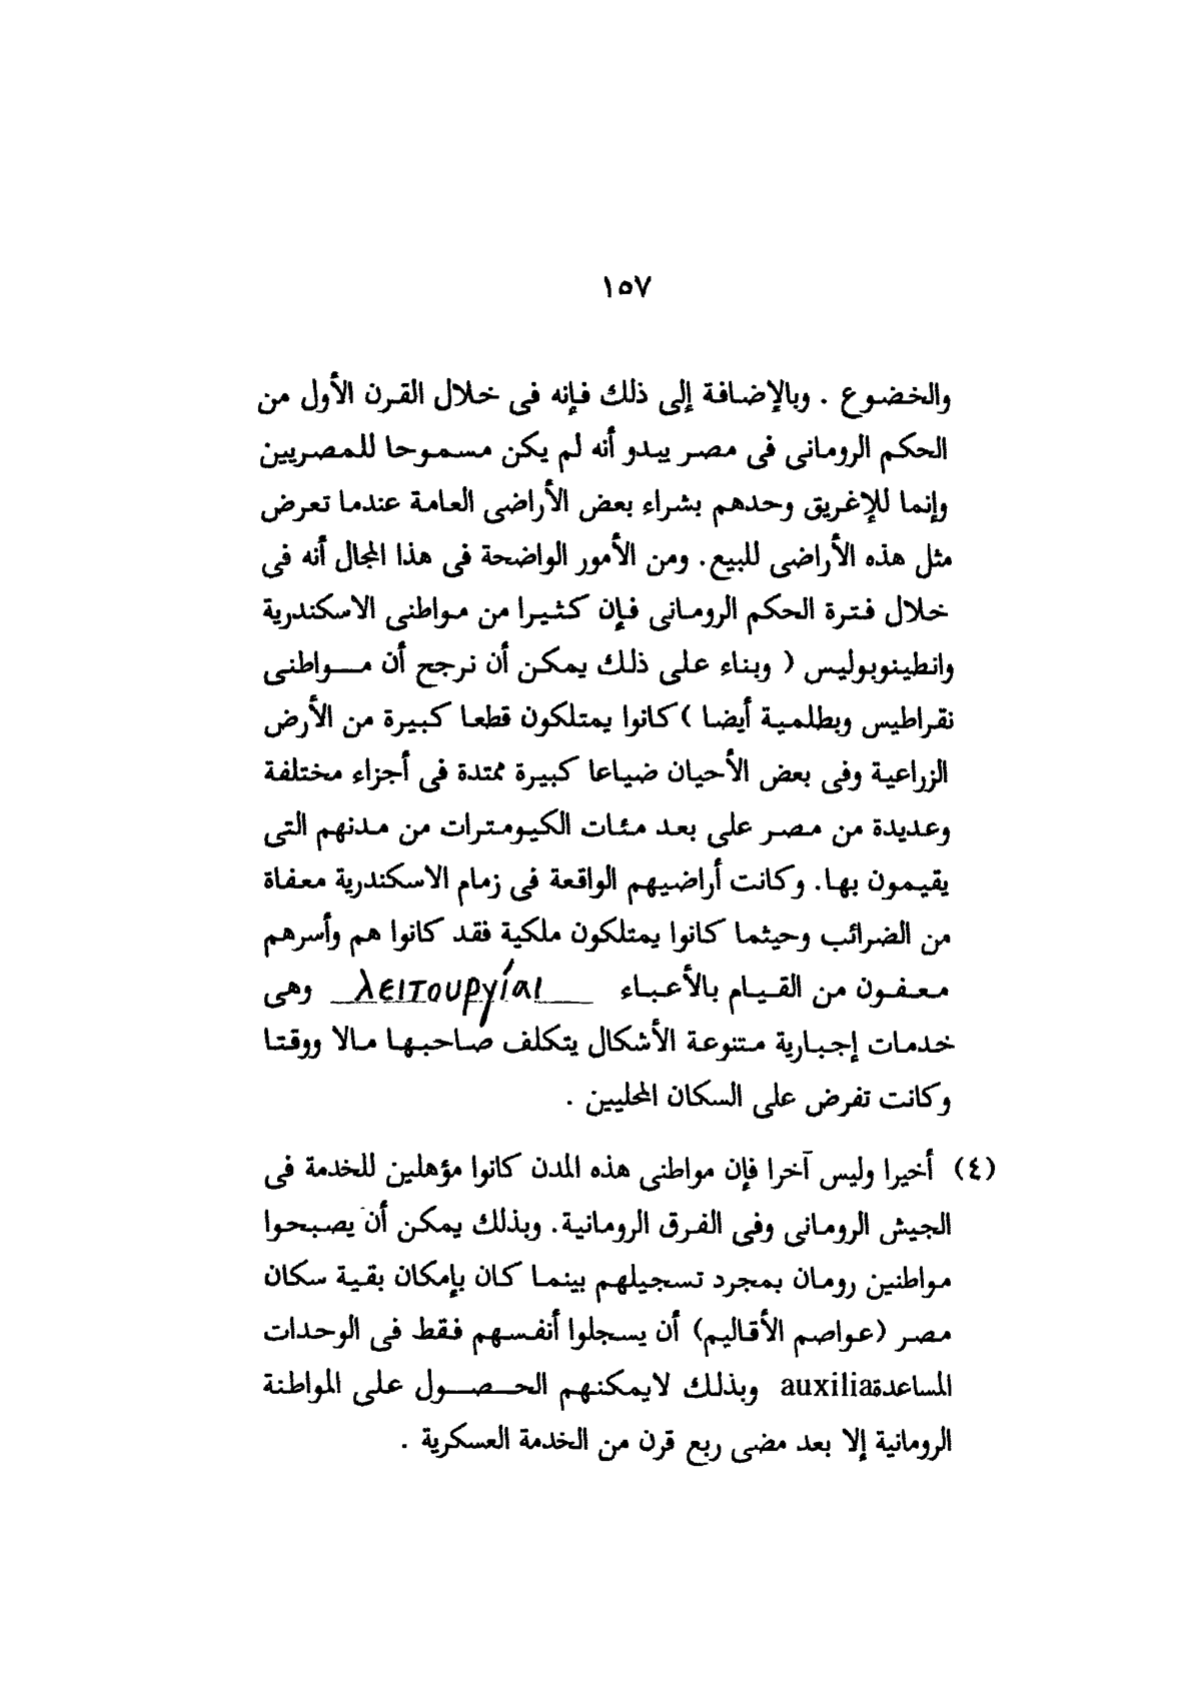 ١٥٧
والخضوع . وبالإضافة إلى ذلك فإنه فى خلال القرن الأول من
الحكم الرومانى فى مصر يبدو أنه لم يكن مسموحا للمصريين
وإنما للإغريق وحدهم بشراء بعض الأراضى العامة عندما تعرض
مثل هذه الأراضى للبيع. ومن الأمور الواضحة فى هذا المجال أنه فى
خلال فترة الحكم الرومانى فإن كثيرا من مواطنى الاسكندرية
وانطينوبوليس ( وبناء على ذلك يمكن أن نرجح أن مواطنى
نقراطيس وبطلمية أيضا ) كانوا يمتلكون قطعا كبيرة من الأرض
الزراعية وفى بعض الأحيان ضياعا كبيرة ممتدة فى أجزاء مختلفة
وعديدة من مصر على بعد مئات الكيومترات من مدنهم التى
يقيمون بها. وكانت أراضيهم الواقعة فى زمام الاسكندرية معفاة
من الضرائب وحيثما كانوا يمتلكون ملكية فقد كانوا هم وأسرهم
معفون من القيام بالأعباء λειτουργίαι وهى
خدمات إجبارية متنوعة الأشكال يتكلف صاحبها مالا ووقتا
وكانت تفرض على السكان المحليين .
(٤) أخيرا وليس آخرا فإن مواطنى هذه المدن كانوا مؤهلين للخدمة فى
الجيش الرومانى وفى الفرق الرومانية. وبذلك يمكن أن يصبحوا
مواطنين رومان بمجرد تسجيلهم بينما كان بإمكان بقية سكان
مصر (عواصم الأقاليم) أن يسجلوا أنفسهم فقط فى الوحدات
المساعدة auxilia وبذلك لايمكنهم الحصول على المواطنة
الرومانية إلا بعد مضى ربع قرن من الخدمة العسكرية .